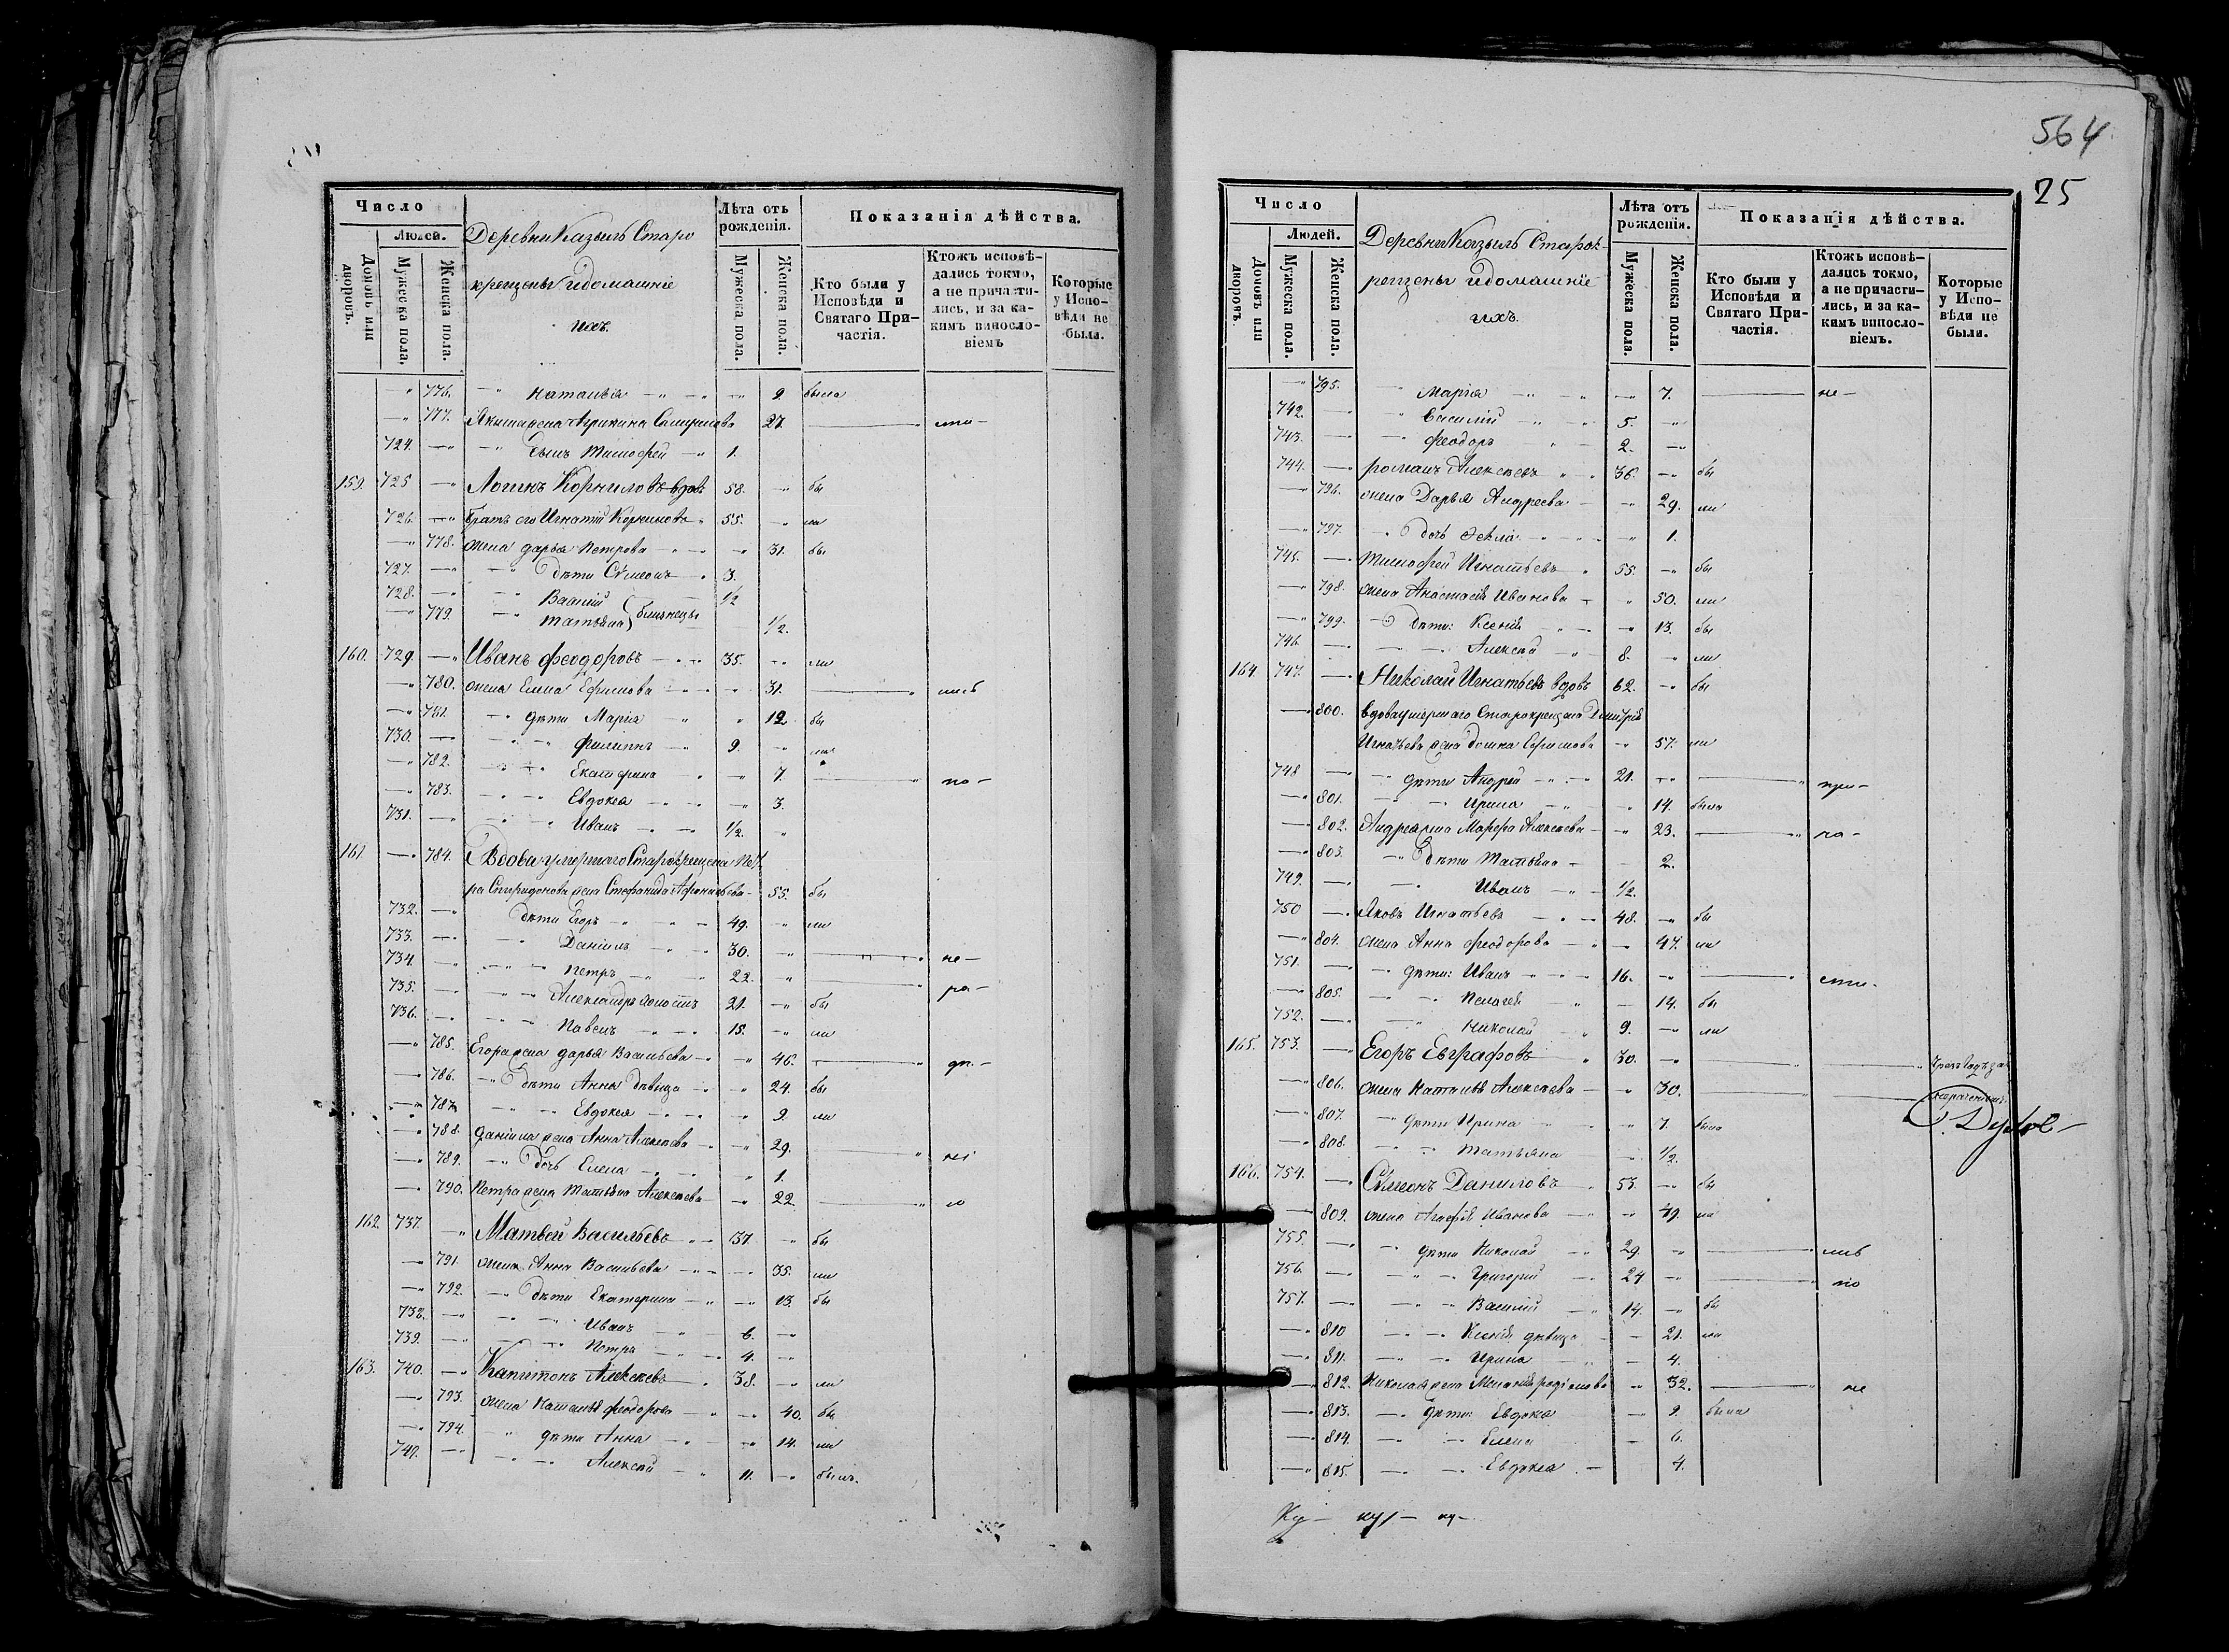 Число
Людей.
Домовъ или дворовъ.
Мужеска пола.
Женска пола.
Деревни Казыль Старо
крещены и домашніе
ихъ.
Лѣта отъ рожденія.
Мужеска пола.
Женска пола.
Показанія дѣйства.
Кто были у Исповѣди и Святаго Причастія.
Ктожъ исповѣдались токмо, а не причастились, и за какимъ винословіемъ
Которые у Исповѣди не были.
776. Наталья 9 была
777. Якима жена Агрипина 27
724. Сынъ Тимофей 1.
159. 725 Логинъ Корниловъ вдовъ 58. бы
726. братъ его Игнатій Корниловъ 55. ли
778. жена Дарья Петрова 31. бы
727. дѣти Сѵмеонъ 3.
728. Василій 1/2
779. Татьяна близнецы 1/2.
160. 729. Иванъ Феодоровъ 35. ли
780. жена Елена Ефимова 31.
781. дѣти Марія 12 бы
730. Филиппъ 9. ли
782. Екатерина 7. по-
783. Евдокея 3.
731. Иванъ 1/2.
161. 784. Вдова умершаго Старокрещена Пет
ра Спиридонова жена Стефанида 55. бы
732. дѣти Егоръ 49. ли
733. Даніилъ 30. не-
734. Петръ 22. ра-
735. Александръ холостъ 21. бы
736. Павелъ 15. ли
785. Егора жена Дарья Васильева 46.
786. дѣти Анна дѣвица 24. бы
787. Евдокея 9. ли
788. Даніила жена Анна Алексѣева 29.
789. дочь Елена 1.
790. Петра жена Татьяна Алексѣева 22
162. 737. Матвей Васильевъ 37. бы
791. жена Анна Васильева 35. ли
792. дѣти Екатерина 13. бы
738. Иванъ 6.
739. Петръ 4.
163. 740. Капитонъ Алексѣевъ 38. ли
793. жена Наталья Феодорова 40. бы
794. дѣти Анна 14. ли
741. Алексѣй 11. былъ.
564
25
Число
Людей.
Домовъ или дворовъ.
Мужеска пола.
Женска пола.
Деревни Казыль Старок-
рещены и домашніе
ихъ.
Лѣта отъ рожденія.
Мужеска пола.
Женска пола.
Показанія дѣйства.
Кто были у Исповѣди и Святаго Причастія.
Ктожъ исповѣдались токмо, а не причастились, и за какимъ винословіемъ.
Которые у Исповѣди не были.
795. Марія 7. не-
742. Василій 5.
743. Феодоръ 2.
744. Романъ Алексѣевъ 36. бы
796. жена Дарья Андреева 29. ли
797. дочь Фекла 1.
745. Тимофей Игнатьевъ 55. бы
798. жена Анастасія Иванова 50. ли
799. дѣти: Ксенія 13. бы
746. Алексѣй 8. ли
164. 747. Николай Игнатьевъ вдовъ 62. бы
800. Вдова умершаго Старокрещена Димитрія
Игнатьева жена Ефимова 57. ли
748 дѣти Андрей 21. при-
801. Ирина 14. была
802. Андрея жена Марфа Алексѣева 23.
803. дѣти Татьяна 2.
749. Иванъ 1/2.
750 Яковъ Игнатьевъ 48. бы
804. жена Анна Феодорова 47. ли
751. дѣти: Иванъ 16. сти-
805. Пелагея 14. бы
752. Николай 9. ли
165. 753. Егоръ Евграфовъ 30.
806. жена Наталья Алексѣева 30.
807. дѣти Ирина 7. была
808. Татьяна 1/2.
166. 754. Сѵмеонъ Даниловъ 53. бы
809. жена Агафія Иванова 49. ли
755. дѣти Николай 29.
756. Григорій 24 по
757. Василій 14. бы
810 Ксенія дѣвица 21. ли
811. Ирина 4.
812. Николая жена Меланія Родіонова 32. не
813. дѣти: Евдокія 9. была
814. Елена 6.
815. Евдокея 4.